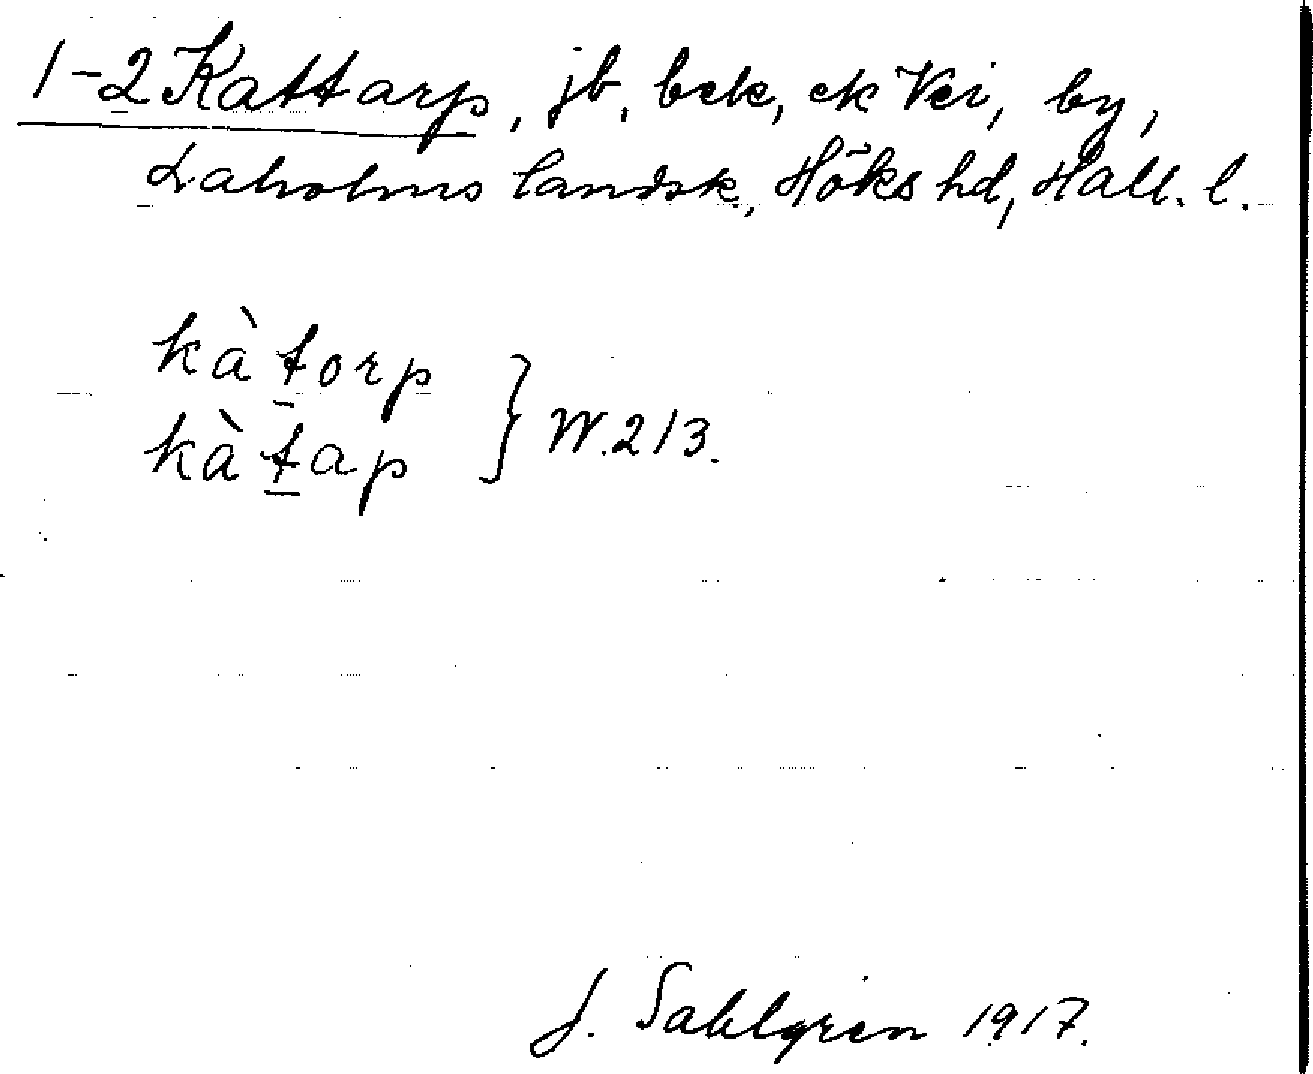 1-2 Kattarp, jb, bek, ek Vei, by,
Laholms landsk, Höks hd, Hall. l.
kàt̲orp
kàt̲ap } W.213.
J. Sahlgren 1917.